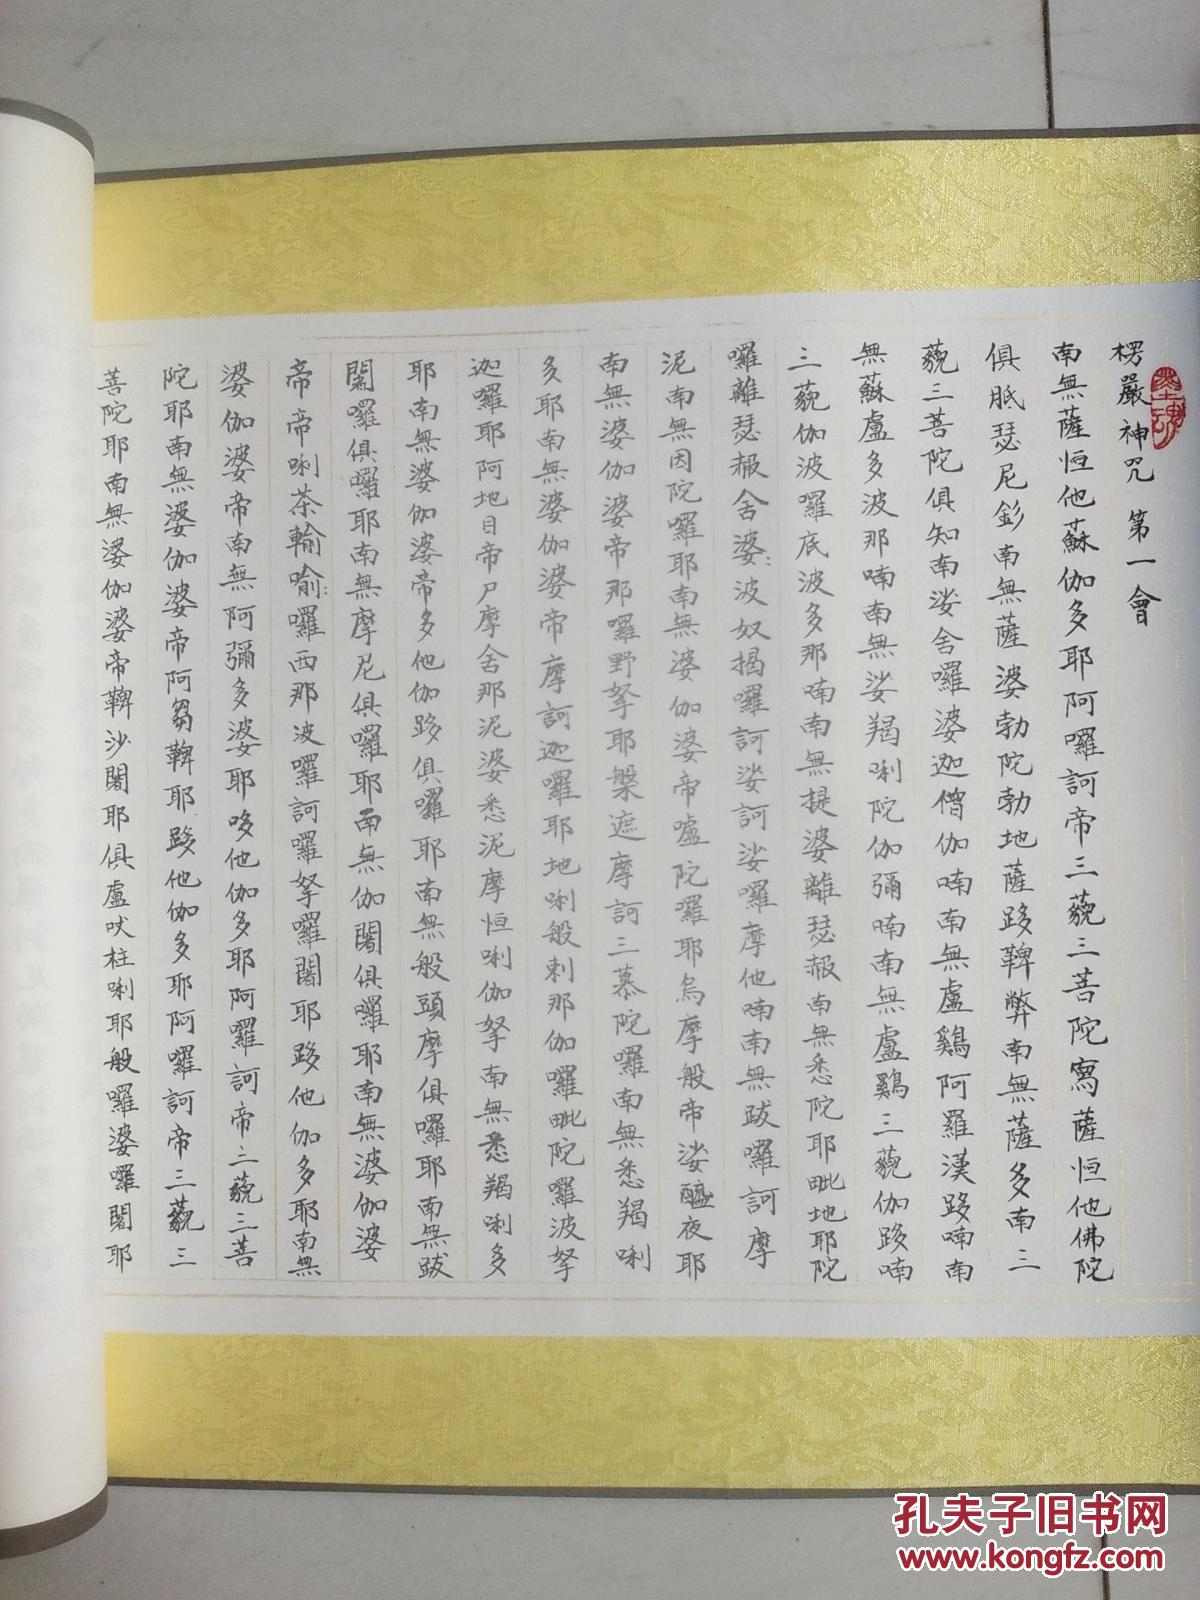 楞嚴神咒 第一會
墨魂
南無薩怛他蘇伽多耶阿囉訶帝三藐三菩陀寫薩怛他佛陀
俱胝瑟尼釤南無薩婆勃陀勃地薩跢鞞弊南無薩多南三
藐三菩陀俱知南娑舍囉婆迦僧伽喃南無盧鷄阿羅漢跢喃南
無蘇盧多波那喃南無娑羯唎陀伽彌喃南無盧鷄三藐伽跢喃
三藐伽波囉底波多那喃南無提婆離瑟赧南無悉陀耶毗地耶陀
囉離瑟赧舍婆波奴揭囉訶娑訶娑囉摩他喃南無跋囉訶摩
泥南無因陀囉耶南無婆伽婆帝嚧陀囉耶烏摩般帝娑醯夜耶
南無婆伽婆帝那囉野拏耶槃遮摩訶三慕陀囉南無悉羯唎
多耶南無婆伽婆帝摩訶迦囉耶地唎般剌那伽囉毗陀囉波拏
迦囉耶阿地目帝尸摩舍那泥婆悉泥摩怛唎伽拏南無悉羯唎多
耶南無婆伽婆帝多他伽跢俱囉耶南無般頭摩俱囉耶南無跋
闍囉俱囉耶南無摩尼俱囉耶南無伽闍俱囉耶南無婆伽婆
帝帝唎茶輸喻囉西那波囉訶囉拏囉闍耶跢他伽多耶南無
婆伽婆帝南無阿彌多婆耶哆他伽多耶阿囉訶帝三藐三菩
陀耶南無婆伽婆帝阿芻鞞耶跢他伽多耶阿囉訶帝三藐三
菩陀耶南無婆伽婆帝鞞沙闍耶俱盧吠柱唎耶般囉婆囉闍耶
孔夫子旧书网
www.kongfz.com